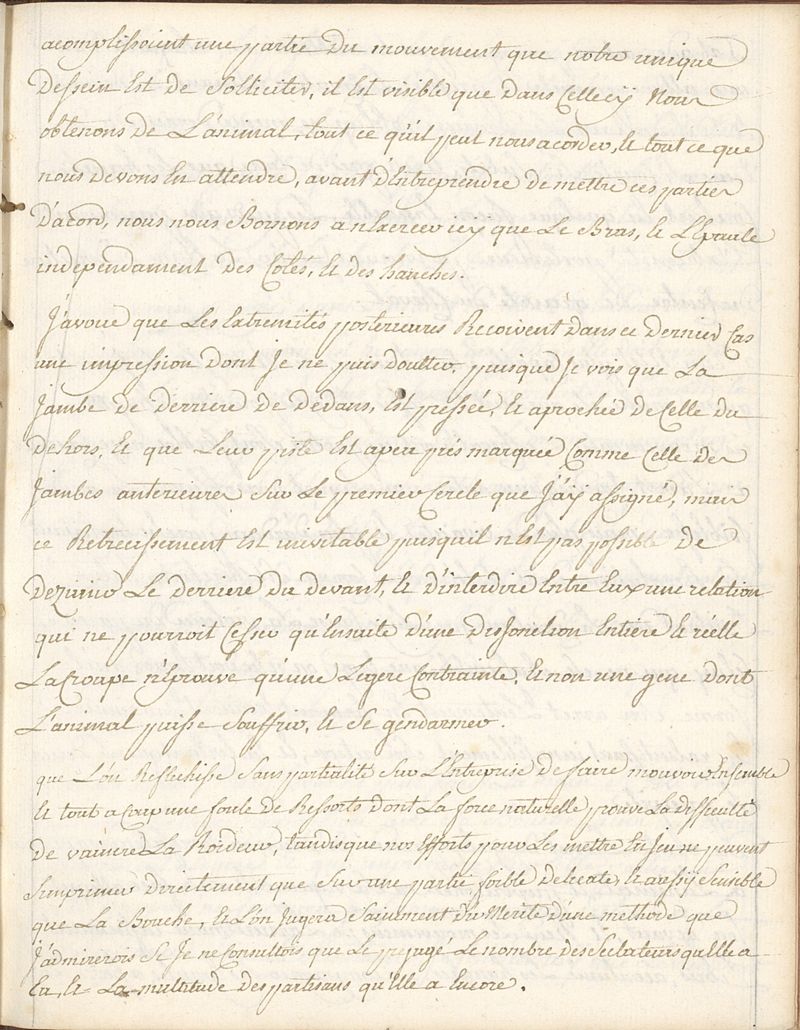 acomplissoient une partie du mouvement que notre unique
dessein Est de Solliciter, il Est visible que dans Celle cy Nous
obtenons de L'animal, tout ce qu'il peut nous acorder, et tout ce que
nous devons En attendre, avant d'Entreprendre de mettre ces parties
d'acord, nous nous Bornons a nExercer icy que Le Bras, et L'Epaule
independament des Cotés, et des hanches.
J'avoue que Les Extremités posterieures Recoivent dans ce dernier Cas
une impression dont Je ne puis doutter, puisque Je vois que La
Jambe de derriere de dedans, Est pressée, et aprochée de Celle du
dehors, et que Leur piste Est apeu prés marquée Comme Celle des
Jambes anterieures Sur Le premier Cercle que J'ay assigné, mais
ce Retrecissement Est inevitable puisquil nEst pas possible de
dezunir Le derriere du devant, et d'interdire Entre Eux une relation
qui ne pourroit Cesser qu'Ensuite d'une disjonction Entiere et réelle
La Croupe n'Eprouve qu'une Legere Contrainte, et non une gene dont
L'animal puisse Souffrir, et Se gendarmer.
que L'on Reflechisse Sans partialité Sur L'Entreprise de faire mouvoir Ensemble
et tout a Coup une foule de Ressorts dont La force naturelle prouve La difficulté
de vaincre La Roideur, tandisque nos Efforts pour Les mettre En Jeu ne peuvent
S'imprimer directement que Sur une partie foible delicate, et aussy Sensible
que La Bouche, et L'on Jugera Sainement du Merite d'une methode que
J'admirerois Si Je ne Consultois que Le prejugé Le nombre des Sectateurs qu'Elle a
Eu, et La multitude des partisans qu'Elle a Encore.